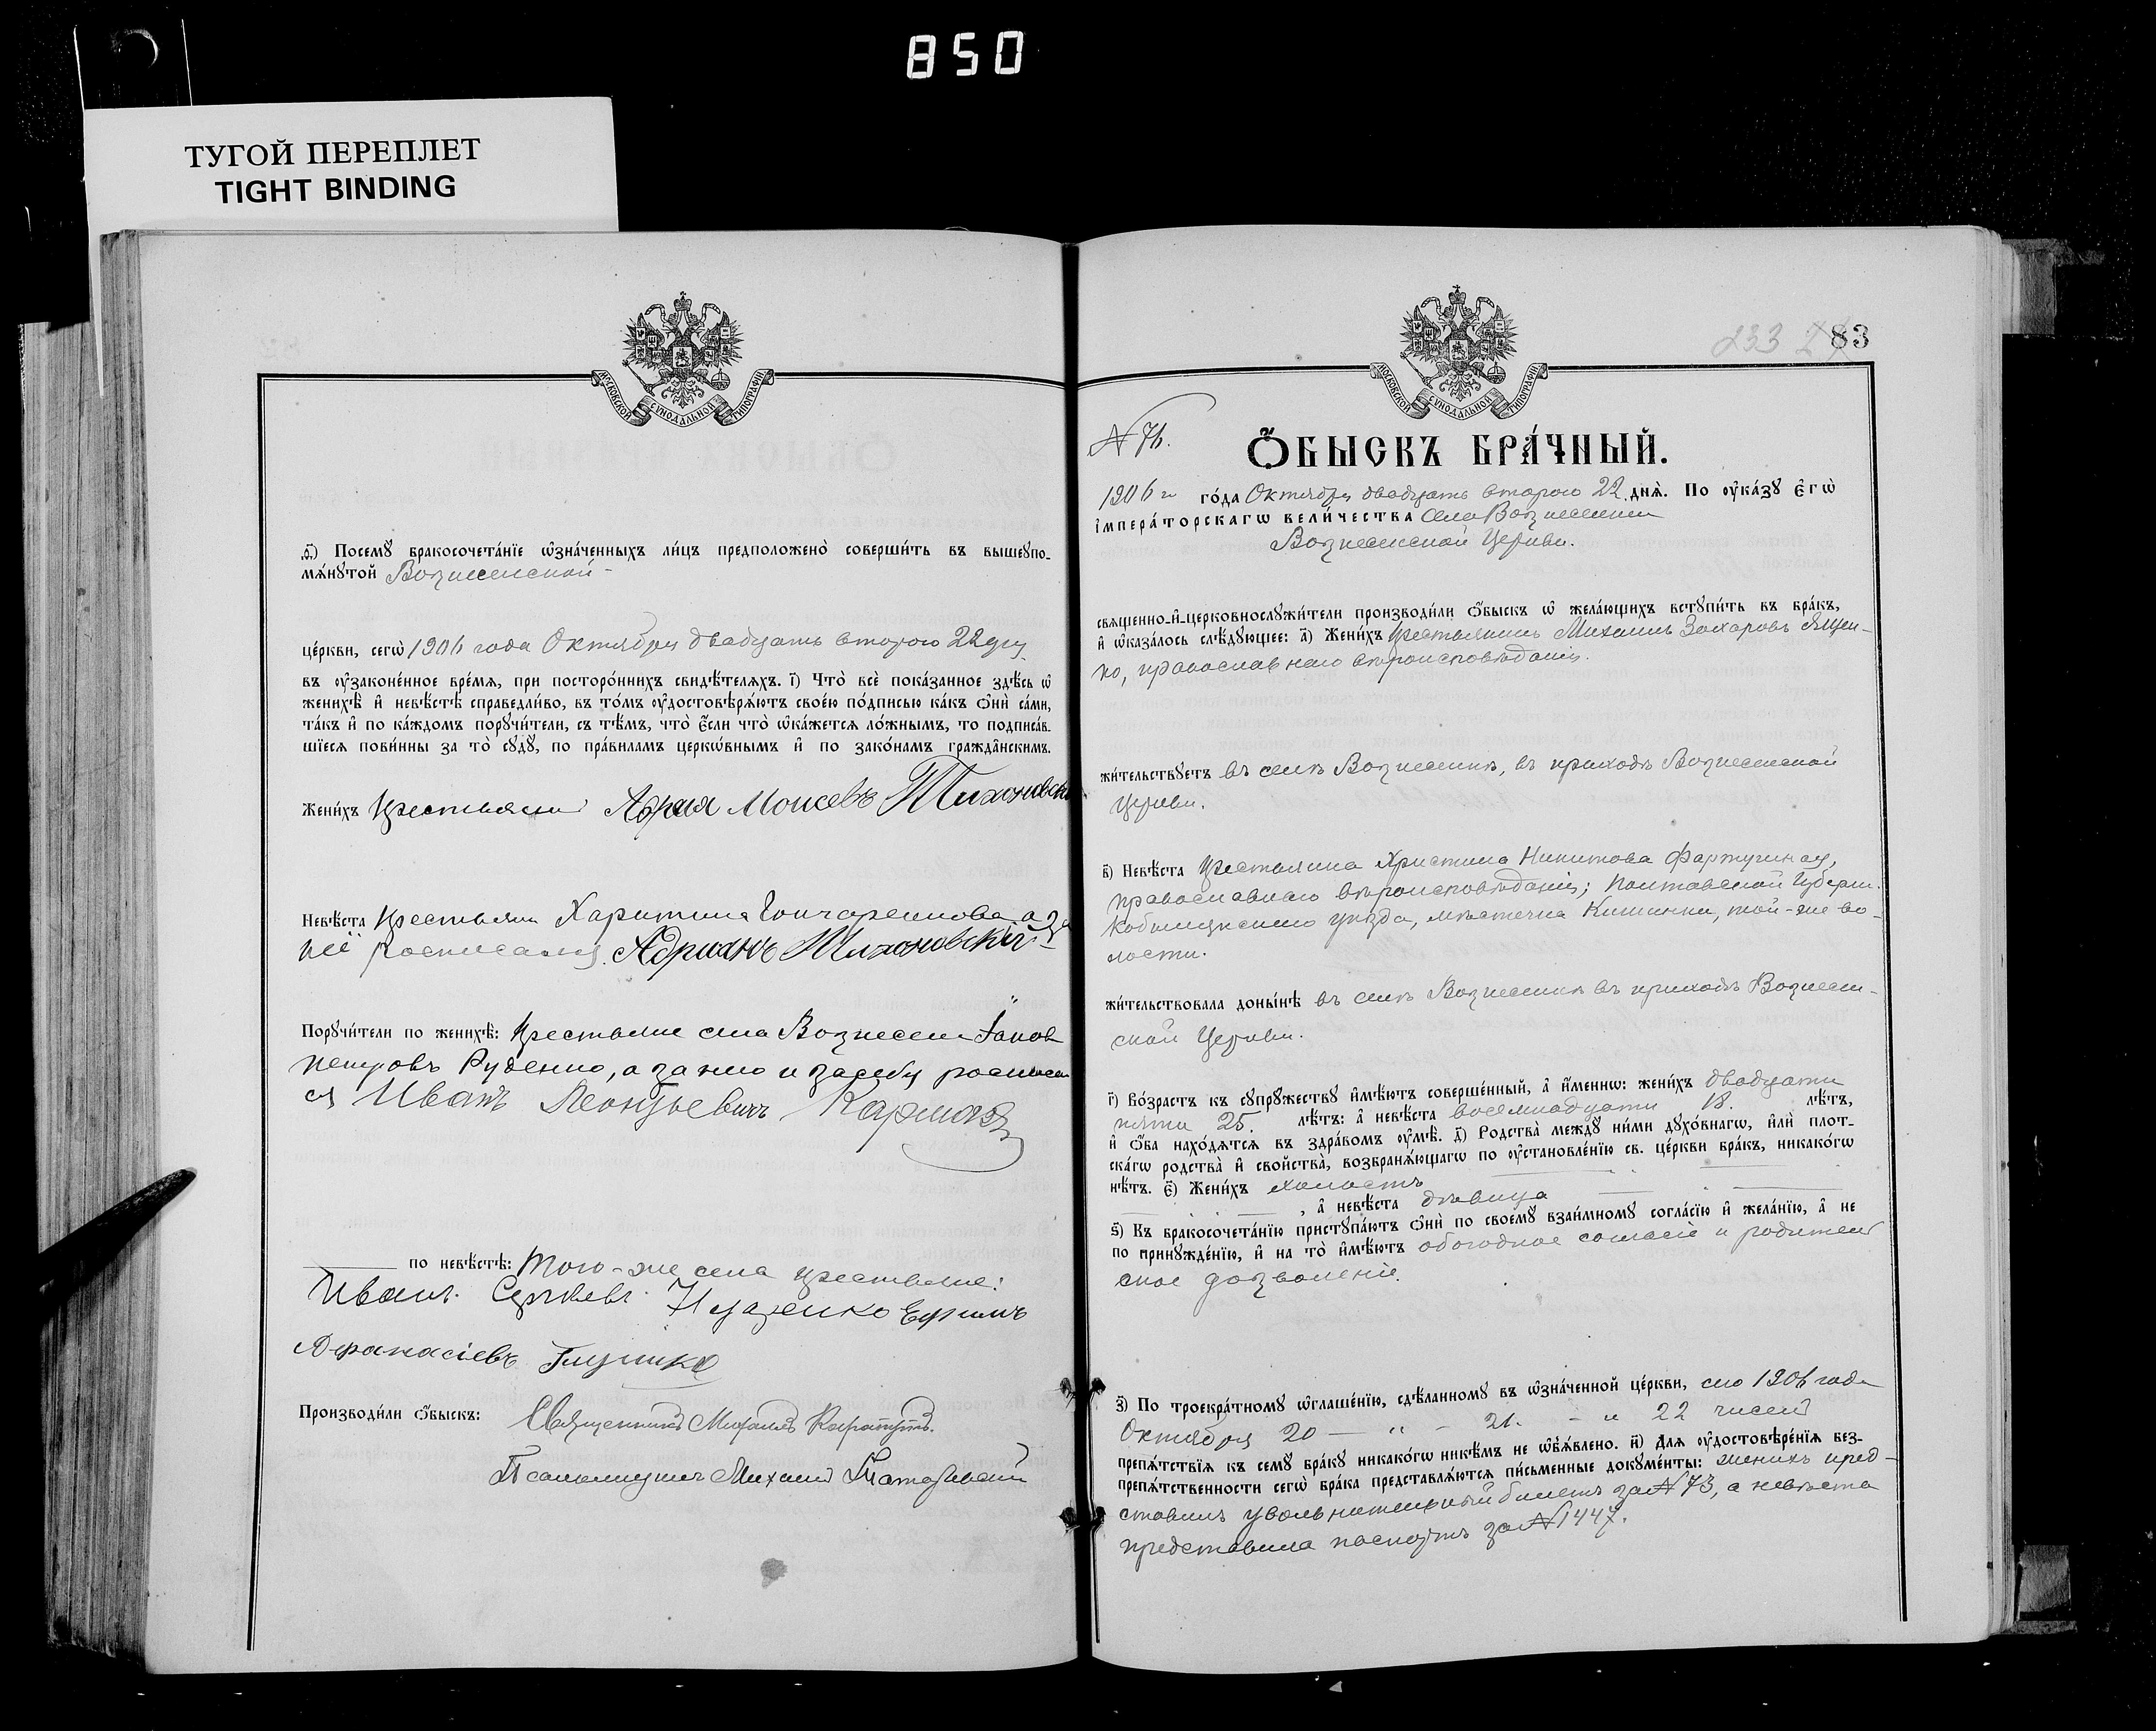 850
ТУГОЙ ПЕРЕПЛЕТ
TIGHT BINDING
МОСКОВСКОЙ СѴНОДАЛЬНОЙ ТИПОГРАФІИ
ѳ҃) Посемꙋ бракосочета́нїе ѡ҆зна́ченныхъ ли́цъ предположено̀ соверши́ть въ вышеꙋпо-
мѧ́нꙋтой Вознесенской -
це́ркви, сегѡ̀ 1906 года Октября двадцать второго 22 дня
въ ᲂу҆законе́нное вре́мѧ, при посторо́ннихъ свидѣ́телѧхъ. і҃) Что̀ всѐ пока́занное здѣ́сь ѡ҆
женихѣ̀ и҆ невѣ́стѣ справедли́во, въ то́мъ ᲂу҆достовѣрѧ́ютъ свое́ю по́дписью ка́къ ѻ҆нѝ са́ми,
та́къ и҆ по ка́ждомъ порꙋчи́тели, съ тѣ́мъ, что̀ є҆́сли что̀ ѡ҆ка́жетсѧ ло́жнымъ, то подписа́в-
шїесѧ пови́нны за то̀ сꙋдꙋ̀, по пра́виламъ церкѡ́внымъ и҆ по зако́намъ гражда̑нскимъ.
Жени́хъ Крестьянин Адриян Моисевъ Тихоновски
Невѣ́ста Крестьянка Харитина Гончаренкова а за
неё росписался Адрианъ Тихоновскій
Порꙋчи́тели по женихѣ̀: Крестьяне села Вознесенки Іаков
Петровъ Руденко, а за него и за себя росписал
ся Иванъ Леонтьевичъ Кармазъ
по невѣ́стѣ: Того-же села крестьяне:
Иванъ Сергѣевъ Ефимъ
Афанасіевъ Глушко
Производи́ли ѻ҆́быскъ: Священникъ Михаилъ
Псаломщикъ Михаил
МОСКОВСКОЙ СѴНОДАЛЬНОЙ ТИПОГРАФІИ
233 83
N 76.
Ѻ҆́БЫСКЪ БРА́ЧНЫЙ.
1906 го го́да Октября двадцать второго 22 днѧ̀. По ᲂу҆ка́зꙋ є҆гѡ̀
і҆мпера́торскагѡ вели́чества села Вознесенки
Вознесенской Церкви.
свѧщенно-и҆-церковнослꙋжи́тели производи́ли ѻ҆́быскъ ѡ҆ жела́ющихъ встꙋпи́ть въ бра́къ,
и҆ ѡ҆каза́лось слѣ́дꙋющее: а҃) Жени́хъ Крестьянинъ Михаилъ Захаровъ Ящен-
ко, православнаго вѣроисповѣданія.
жи́тельствꙋетъ въ селѣ Вознесенкѣ, въ приходѣ Вознесенской
Церкви.
в҃) Невѣ́ста Крестьянка Христина Никитова Фартучная,
православнаго вѣроисповѣданія; Полтавской Губерн.
Кобеляцкаго уѣзда, мѣстечка Кишенки, той-же во-
лости.
жи́тельствовала доны́нѣ въ селѣ Вознесенкѣ въ приходѣ Вознесен-
ской Церкви.
г҃) Во́зрастъ къ сꙋпрꙋжествꙋ и҆мѣ́ютъ соверше́нный, а҆ и҆́меннѡ: жени́хъ двадцати
пяти 25. лѣ́тъ: а҆ невѣ́ста восемнадцати 18. лѣ́тъ,
и҆ ѻ҆́ба нахо́дѧтсѧ въ здра́вомъ ᲂу҆мѣ̀. д҃) Родства̀ междꙋ ни́ми дꙋхо́внагѡ, и҆лѝ плот-
ска́гѡ родства̀ и҆ сво́йства̀, возбранѧ́ющагѡ по ᲂу҆становле́нїю св. це́ркви бра́къ, никако́гѡ
нѣ́тъ. є҃) Жени́хъ холостъ
, а҆ невѣ́ста дѣвица
ѕ҃) Къ бракосочета́нїю пристꙋпа́ютъ ѻ҆нѝ по своемꙋ̀ взаи́мномꙋ согла́сїю и҆ жела́нїю, а҆ не
по принꙋжде́нїю, и҆ на то̀ и҆мѣ́ютъ обоюдное согласіе и родитель
ское дозволеніе.
з҃) По троекра́тномꙋ ѡ҆глаше́нїю, сдѣ́ланномꙋ въ ѡ҆зна́ченной це́ркви, сего 1906 года
Октября 20 — " - 21. - и 22 чиселъ
препѧ́тствїѧ къ семꙋ̀ бра́кꙋ никако́гѡ никѣ́мъ не ѡ҆б̾ѧ́влено. и҃) Длѧ ᲂу҆достовѣре́нїѧ без-
препѧ́тственности сегѡ̀ бра́ка представлѧ́ютсѧ пи́сьменные докꙋме́нты: женихъ пред-
ставилъ увольнительный билетъ за N 73, а невѣста
представила паспортъ за N 1447.